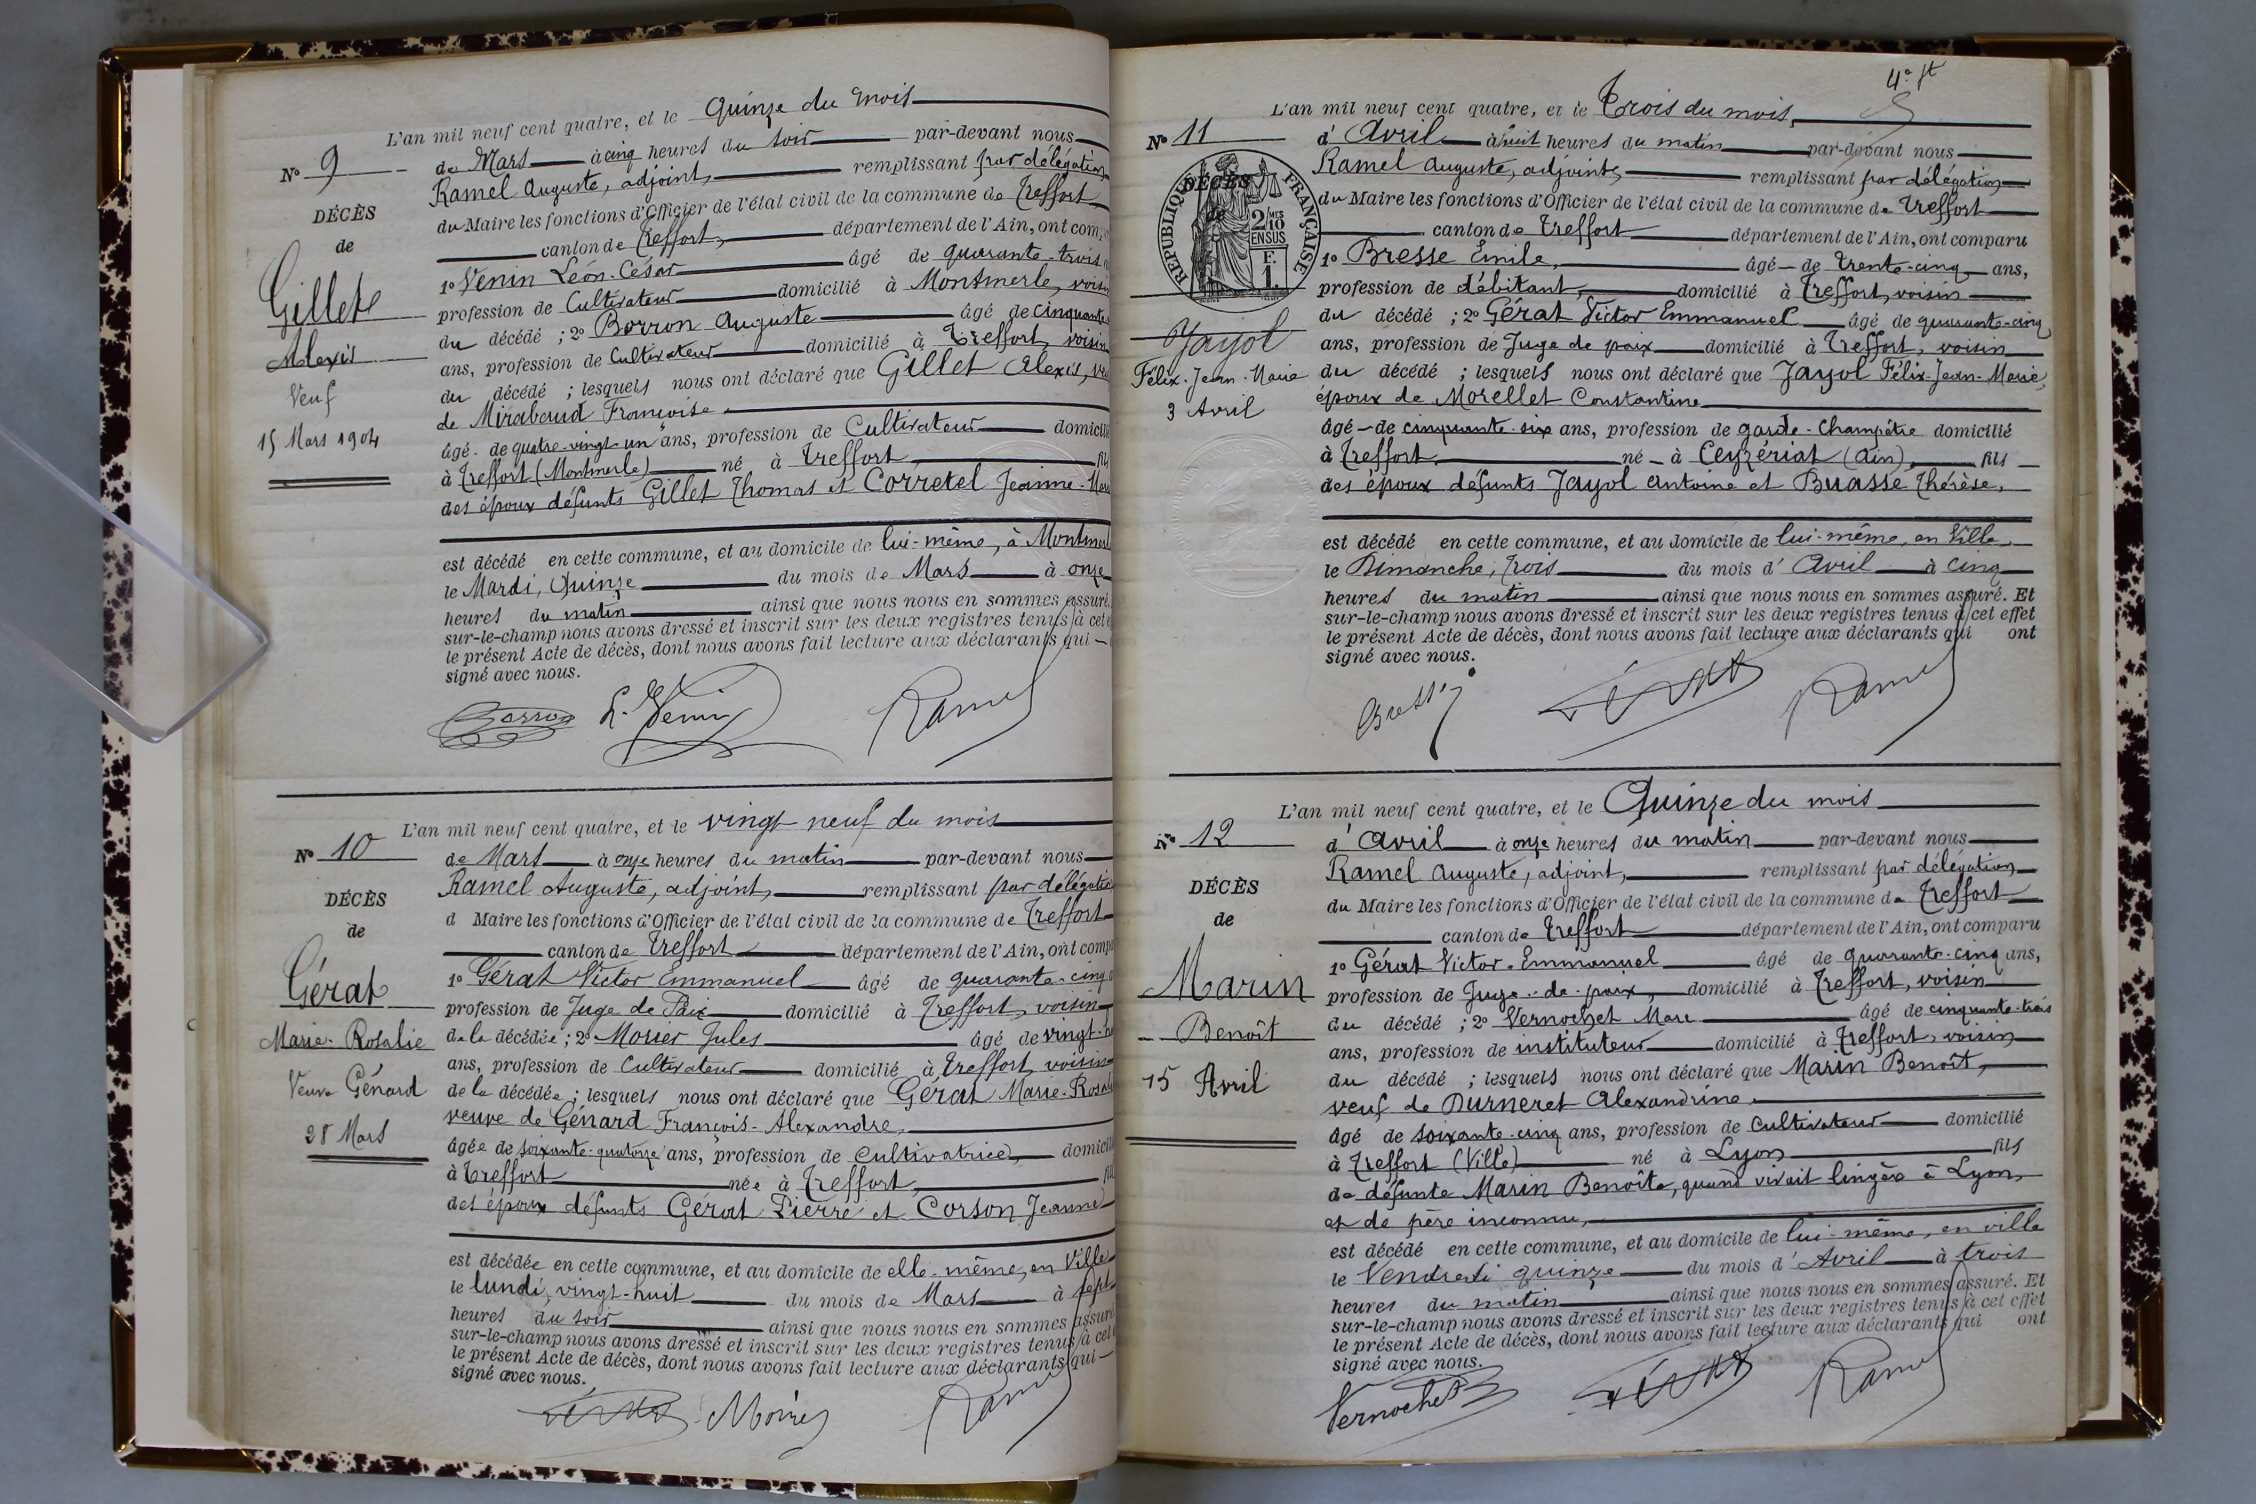 L'an mil neuf cent quatre, et le Quinze du mois
No 9
de Mars à cinq heures du soir par-devant nous
Ramel Auguste, adjoint, remplissant par délégation
du Maire les fonctions d'Officier de l'état civil de la commune de Treffort
DÉCÈS
de
Gillet
Alexis
Veuf
15 Mars 1904
canton de Treffort, département de l'Ain, ont comp
1o Venin Léon-César âgé de quarante-trois
profession de Cultivateur domicilié à Montmerle, voisin
du décédé ; 2o Borron Auguste âgé de cinquante
ans, profession de Cultivateur domicilié à Treffort, voisin
du décédé ; lesquels nous ont déclaré que Gillet Alexis,
de Mirabaud Françoise
âgé de quatre-vingt-un ans, profession de Cultivateur domicilié
à Treffort (Montmerle) né à Treffort, fils
des époux défunts Gillet Thomas et Corretel Jeanne-
est décédé en cette commune, et au domicile de lui-même, à Montmerl
le Mardi, Quinze du mois de Mars à onze
heures du matin ainsi que nous nous en sommes assuré.
sur-le-champ nous avons dressé et inscrit sur les deux registres tenus à cet
le présent Acte de décès, dont nous avons fait lecture aux déclarants qui
signé avec nous.
Borron L. Venin Ramel
L'an mil neuf cent quatre, et le vingt neuf du mois
No 10
de Mars à onze heures du matin par-devant nous
Ramel Auguste, adjoint, remplissant par délégation
d Maire les fonctions d'Officier de l'état civil de la commune de Treffort
DÉCÈS
de
Gérat
Marie-Rosalie
Veuve Génard
28 Mars
canton de Treffort département de l'Ain, ont comp
1o Gérat Victor Emmanuel âgé de quarante-cinq
profession de Juge de Paix domicilié à Treffort, voisin
de la décédée ; 2o Morier Jules âgé de vingt-
ans, profession de Cultivateur domicilié à Treffort, voisins
de la décédée ; lesquels nous ont déclaré que Gérat Marie-Rosal
veuve de Génard François-Alexandre,
âgée de soixante-quatorze ans, profession de Cultivatrice, domicili
à Treffort née à Treffort,
des époux défunts Gérat Pierre et Corson Jeanne
est décédée en cette commune, et au domicile de elle-même, en Ville
le lundi, vingt-huit du mois de Mars à sept
heures du soir ainsi que nous nous en sommes assuré
sur-le-champ nous avons dressé et inscrit sur les deux registres tenus à cet
le présent Acte de décès, dont nous avons fait lecture aux déclarants qui
signé avec nous.
Gérat Morier Ramel
L'an mil neuf cent quatre, et le Trois du mois
No 11
d' Avril à huit heures du matin par-devant nous
Ramel Auguste, adjoint, remplissant par délégation
du Maire les fonctions d'Officier de l'état civil de la commune de Treffort
DÉCÈS
de
RÉPUBLIQUE FRANÇAISE
2/10 MES
EN SUS
F.
1.
Jayol
Félix-Jean-Marie
3 Avril
canton de Treffort département de l'Ain, ont comparu
1o Bresse Emile, âgé de trente-cinq ans,
profession de débitant, domicilié à Treffort, voisin
du décédé ; 2o Gérat Victor Emmanuel âgé de quarante-cinq
ans, profession de Juge de paix domicilié à Treffort, voisin
du décédé ; lesquels nous ont déclaré que Jayol Félix-Jean-Marie,
époux de Morellet Constantine
âgé de cinquante-six ans, profession de garde-Champêtre domicilié
à Treffort, né à Ceyzériat (Ain), fils
des époux défunts Jayol Antoine et Buasse Thérèse,
est décédé en cette commune, et au domicile de lui-même, en Ville,
le Dimanche, Trois du mois d' Avril à cinq
heures du matin ainsi que nous nous en sommes assuré. Et
sur-le-champ nous avons dressé et inscrit sur les deux registres tenus à cet effet
le présent Acte de décès, dont nous avons fait lecture aux déclarants qui ont
signé avec nous.
Bresse Gérat Ramel
L'an mil neuf cent quatre, et le Quinze du mois
No 12
d' Avril à onze heures du matin par-devant nous
Ramel Auguste, adjoint, remplissant par délégation
du Maire les fonctions d'Officier de l'état civil de la commune de Treffort
DÉCÈS
de
Marin
Benoît
15 Avril
canton de Treffort département de l'Ain, ont comparu
1o Gérat Victor-Emmanuel âgé de quarante-cinq ans,
profession de Juge-de-paix, domicilié à Treffort, voisin
du décédé ; 2o Vernochet Marc âgé de cinquante-trois
ans, profession de instituteur domicilié à Treffort, voisin
du décédé ; lesquels nous ont déclaré que Marin Benoît,
veuf de Durneret Alexandrine
âgé de soixante-cinq ans, profession de cultivateur domicilié
à Treffort (Ville) né à Lyon fils
de défunte Marin Benoîte, quand vivait lingère à Lyon,
et de père inconnu,
est décédé en cette commune, et au domicile de lui-même, en ville
le Vendredi quinze du mois d' Avril à trois
heures du matin ainsi que nous nous en sommes assuré. Et
sur-le-champ nous avons dressé et inscrit sur les deux registres tenus à cet effet
le présent Acte de décès, dont nous avons fait lecture aux déclarants qui ont
signé avec nous.
Vernochet Gérat Ramel